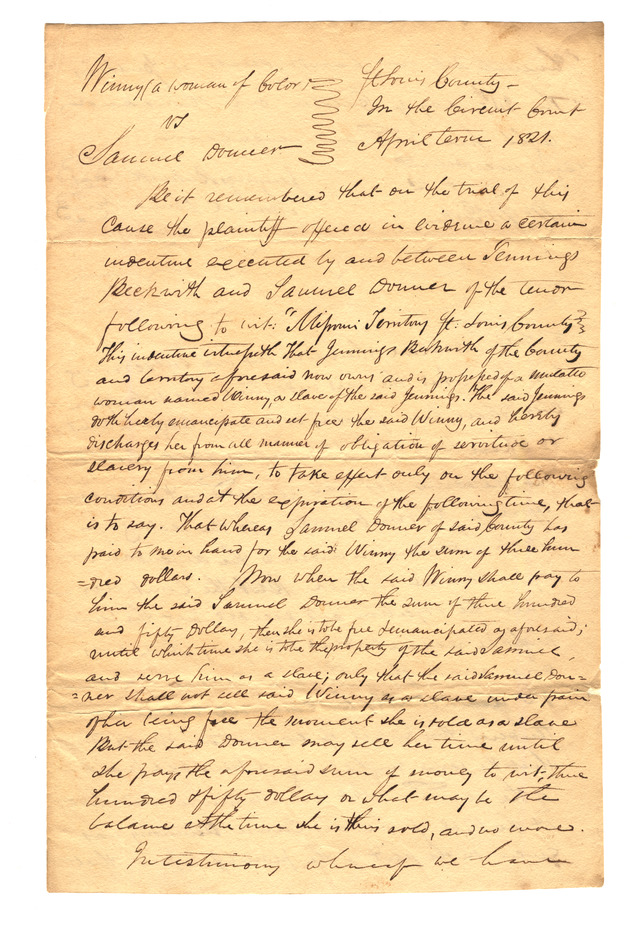 Winny (a woman of Color)
vs
Samuel Donner
St Louis County -
In the Circuit Court
April term 1821.
Be it remembered that on the trial of this
Cause the plaintiff offered in evidence a certain
indenture executed by and between Jennings
Beckwith and Samuel Donner of the tenor
following to wit: "Missouri Territory St. Louis County
This indenture witnesseth That Jennings Beckwith of the County
and territory aforesaid now owns and is possessed of a mulatto
woman named Winny a slave of the said Jennings. The said Jennings
doth hereby emancipate and set free the said Winny, and hereby
discharges her from all manner of obligation of servitude or
slavery from him, to take effect only on the following
conditions and at the expiration of the following time, that
is to say. That whereas Samuel Donner of said County has
paid to me in hand for the said Winny the sum of three hun
=dred dollars. Now when the said Winny shall pay to
him the said Samuel Donner the sum of three hundred
and fifty Dollars, then she is to be free & emancipated as aforesaid;
until which time she is to be the property of the said Samuel,
and serve him as a slave; only that the said Samuel Don=
=ner shall not sell said Winny as a slave under pain
of her being free the moment she is sold as a slave
But the said Donner may sell her time until
she pays the aforesaid sum of money to wit, three
hundred & fifty dollars or what may be the
balance at the time she is thus sold, and no more.
In testimony whereof we have